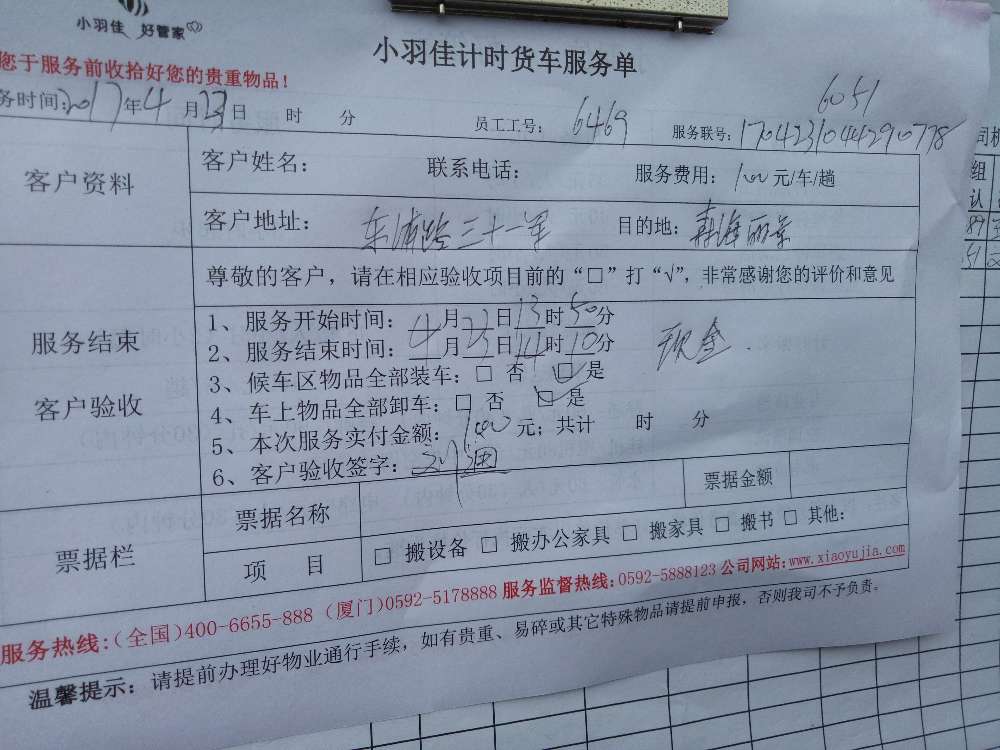 小羽佳 好管家
小羽佳计时货车服务单
您于服务前收拾好您的贵重物品！
6051
务时间：2017年4月23日 时 分 员工工号：6469 服务联号：17042310442910778
客户资料
客户姓名： 联系电话： 服务费用：100元/车/趟
客户地址：东浦路三十一号 目的地：森海丽景
尊敬的客户，请在相应验收项目前的“□”打“√”，非常感谢您的评价和意见
服务结束
客户验收
1、服务开始时间：4月23日13时50分
2、服务结束时间：4月23日14时10分
现金.
3、候车区物品全部装车：□ 否 ☑是
4、车上物品全部卸车：□ 否 ☑是
5、本次服务实付金额：100元；共计 时 分
6、客户验收签字：
票据栏
票据名称 票据金额
项 目 □ 搬设备 □ 搬办公家具 □ 搬家具 □ 搬书 □ 其他：
服务热线：(全国)400-6655-888 (厦门)0592-5178888 服务监督热线：0592-5888123 公司网站：www.xiaoyujia.com
温馨提示：请提前办理好物业通行手续，如有贵重、易碎或其它特殊物品请提前申报，否则我司不予负责。
司机
组
认